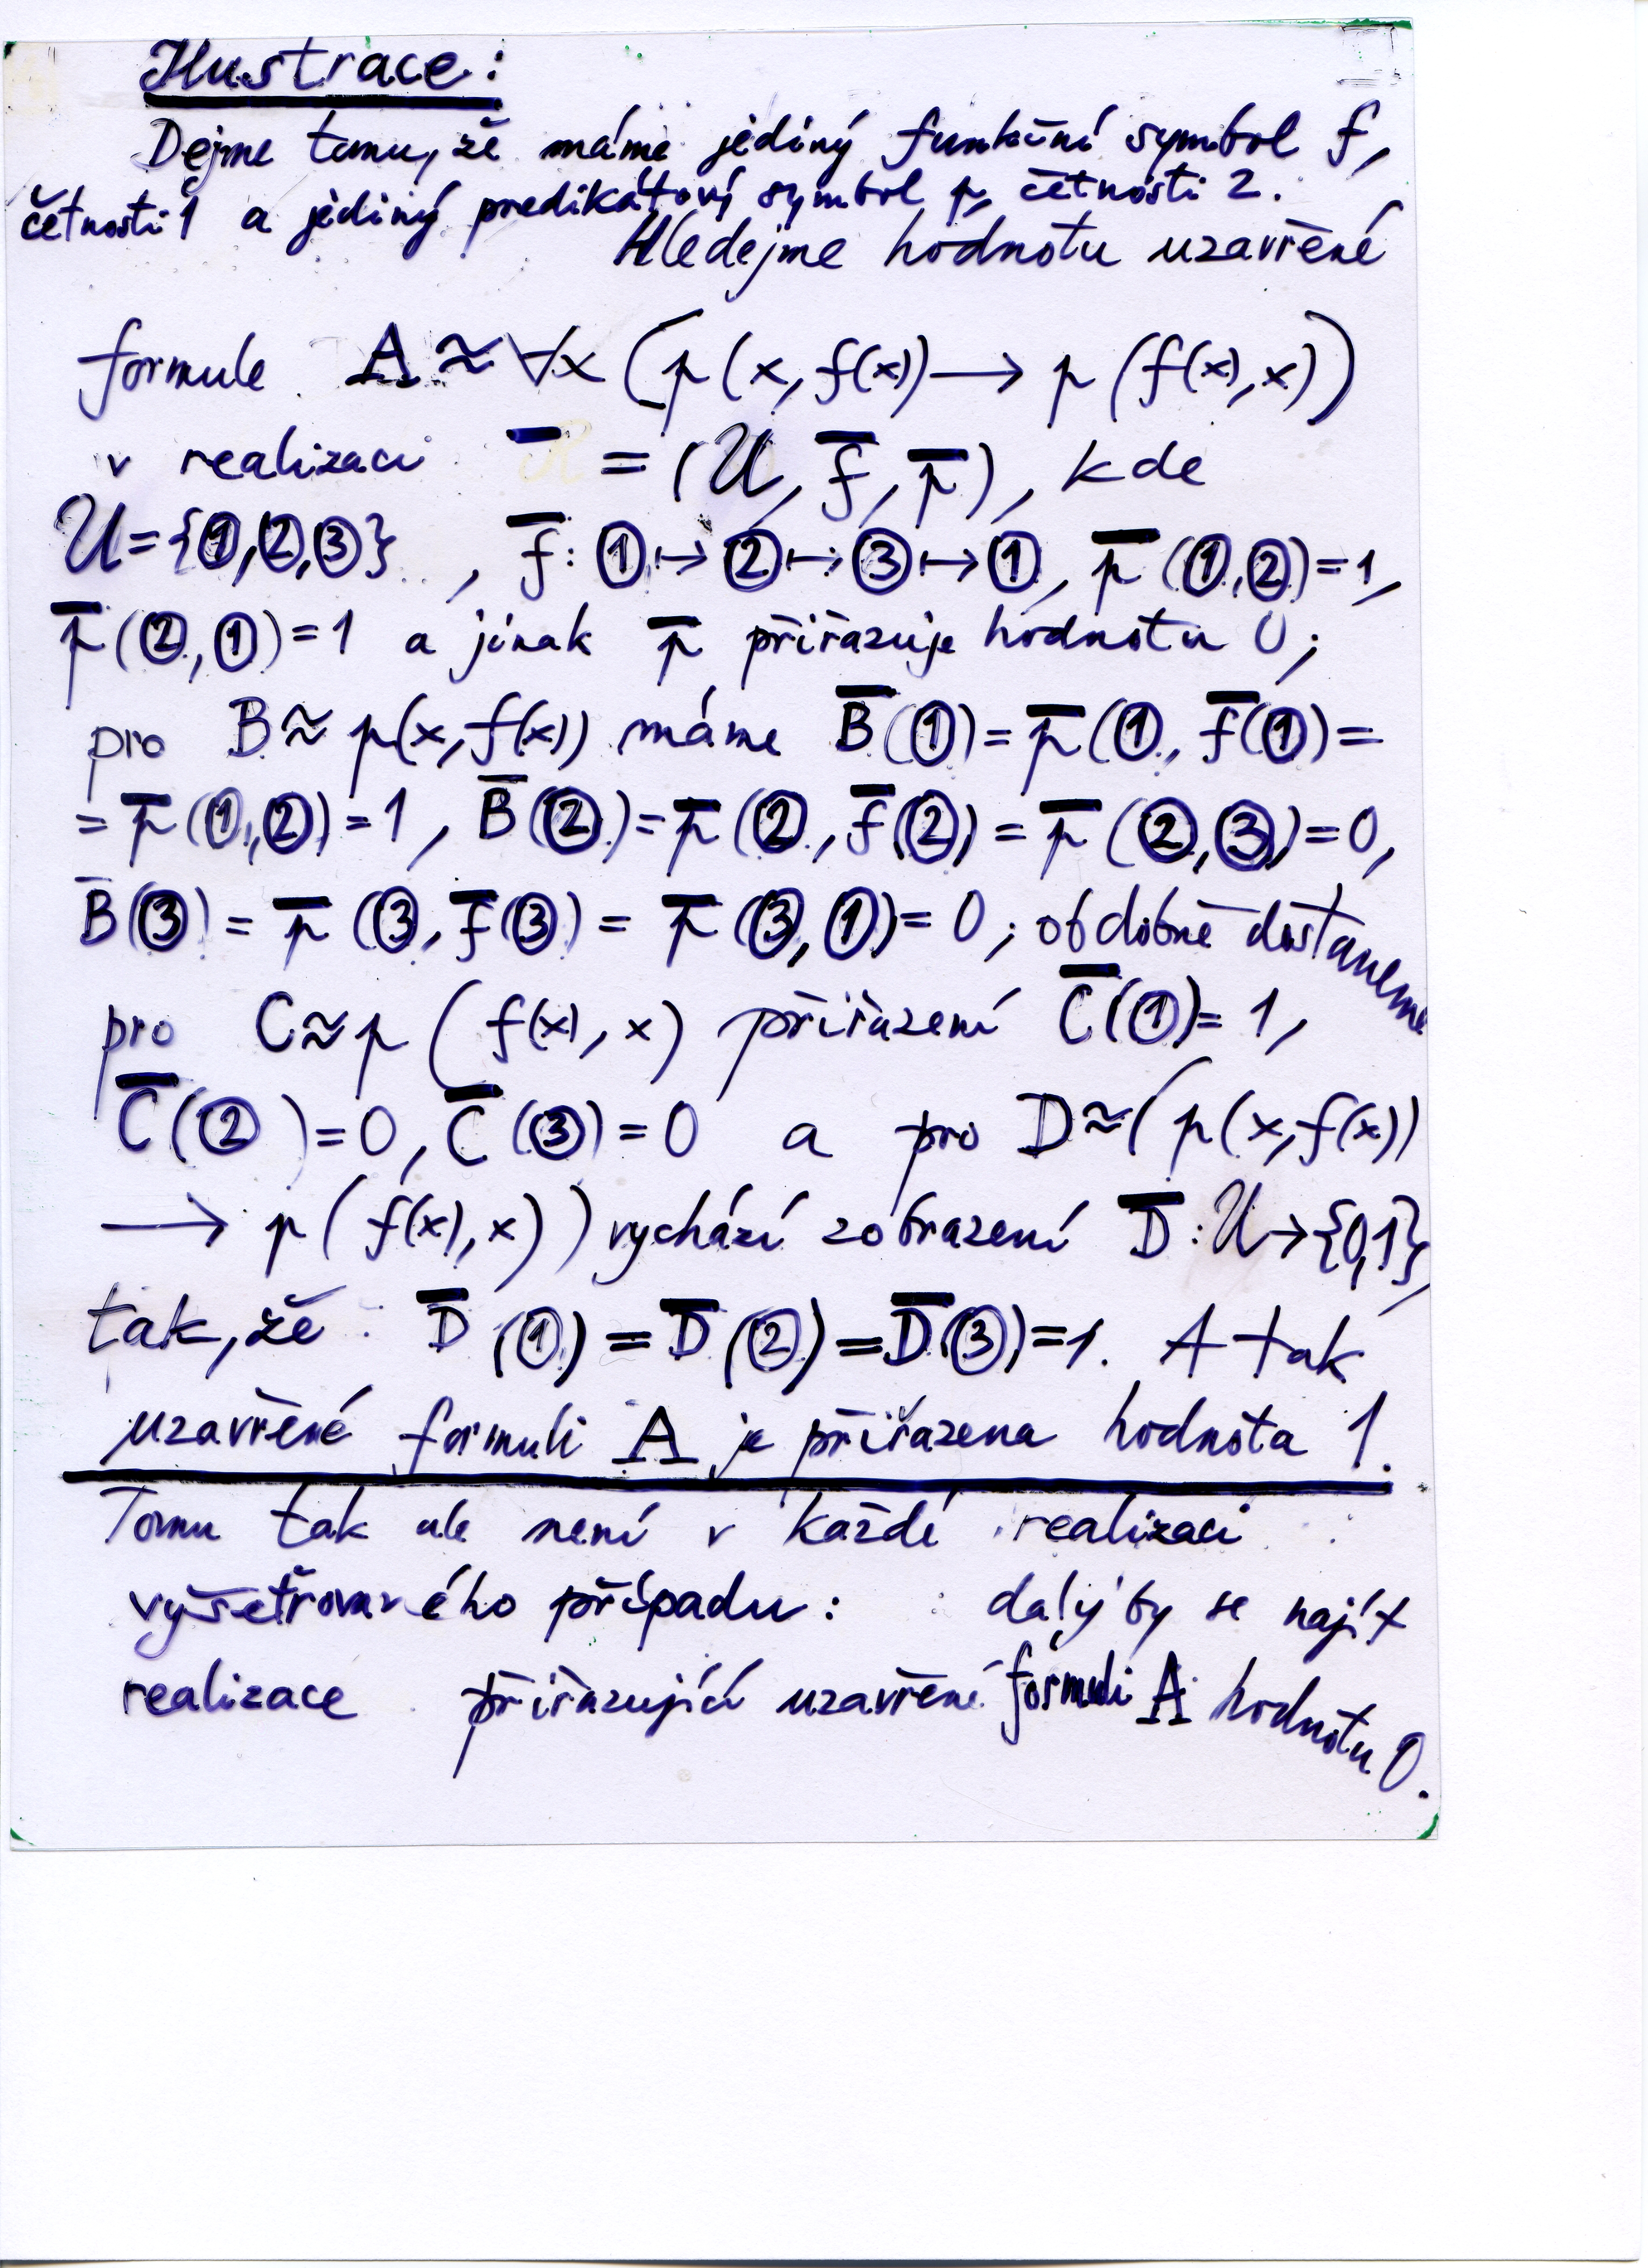 Ilustrace:
Dejme tomu, že máme jediný funkční symbol f,
četnosti 1 a jediný predikátový symbol p, četnosti 2.
Hledejme hodnotu uzavřené
formule A ≈ ∀x (p(x, f(x)) → p(f(x), x))
v realizaci ‾ = (U, f̅, p̅), kde
U = {①, ②, ③}, f̅: ① ↦ ② ↦ ③ ↦ ①, p̅(①, ②) = 1,
p̅(②, ①) = 1 a jinak p̅ přiřazuje hodnotu 0;
pro B ≈ p(x, f(x)) máme B̅(①) = p̅(①, f̅(①) =
= p̅(①, ②) = 1, B̅(②) = p̅(②, f̅(②) = p̅(②, ③) = 0,
B̅(③) = p̅(③, f̅(③) = p̅(③, ①) = 0; obdobně dostaneme
pro C ≈ p(f(x), x) přiřazení C̅(①) = 1,
C̅(②) = 0, C̅(③) = 0 a pro D ≈ (p(x, f(x))
→ p(f(x), x)) vychází zobrazení D̅: U → {0,1},
tak, že D̅(①) = D̅(②) = D̅(③) = 1. A tak
uzavřené formuli A je přiřazena hodnota 1.
Tomu tak ale není v každé realizaci
vyšetřovaného případu: daly by se najít
realizace přiřazující uzavřené formuli A hodnotu 0.